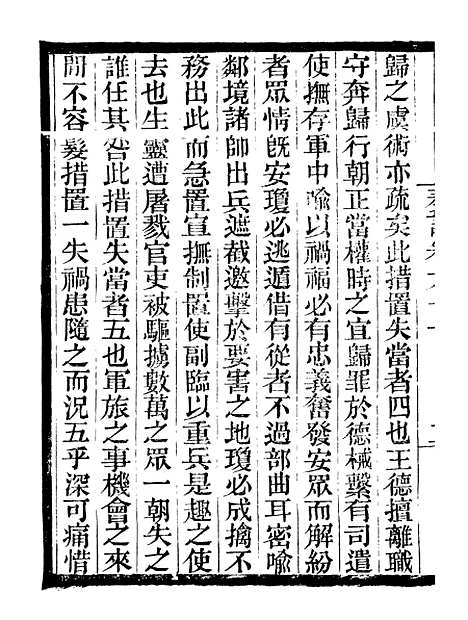 歸之虞術亦疏矣此措置失當者四也王德擅離職
守奔歸行朝正當權時之宜歸罪於德械繫有司遣
使撫存軍中喻以禍福必有忠義奮發安眾而解紛
者眾情旣安瓊必逃遁借有從者不過部曲耳密喻
鄰境諸帥出兵遮截邀擊於要害之地瓊必成擒不
務出此而急置宣撫制置使副臨以重兵是趣之使
去也生靈遭屠戮官吏被驅擄數萬之眾一朝失之
誰任其咎此措置失當者五也軍旅之事機會之來
間不容髮措置一失禍患隨之而況五乎深可痛惜